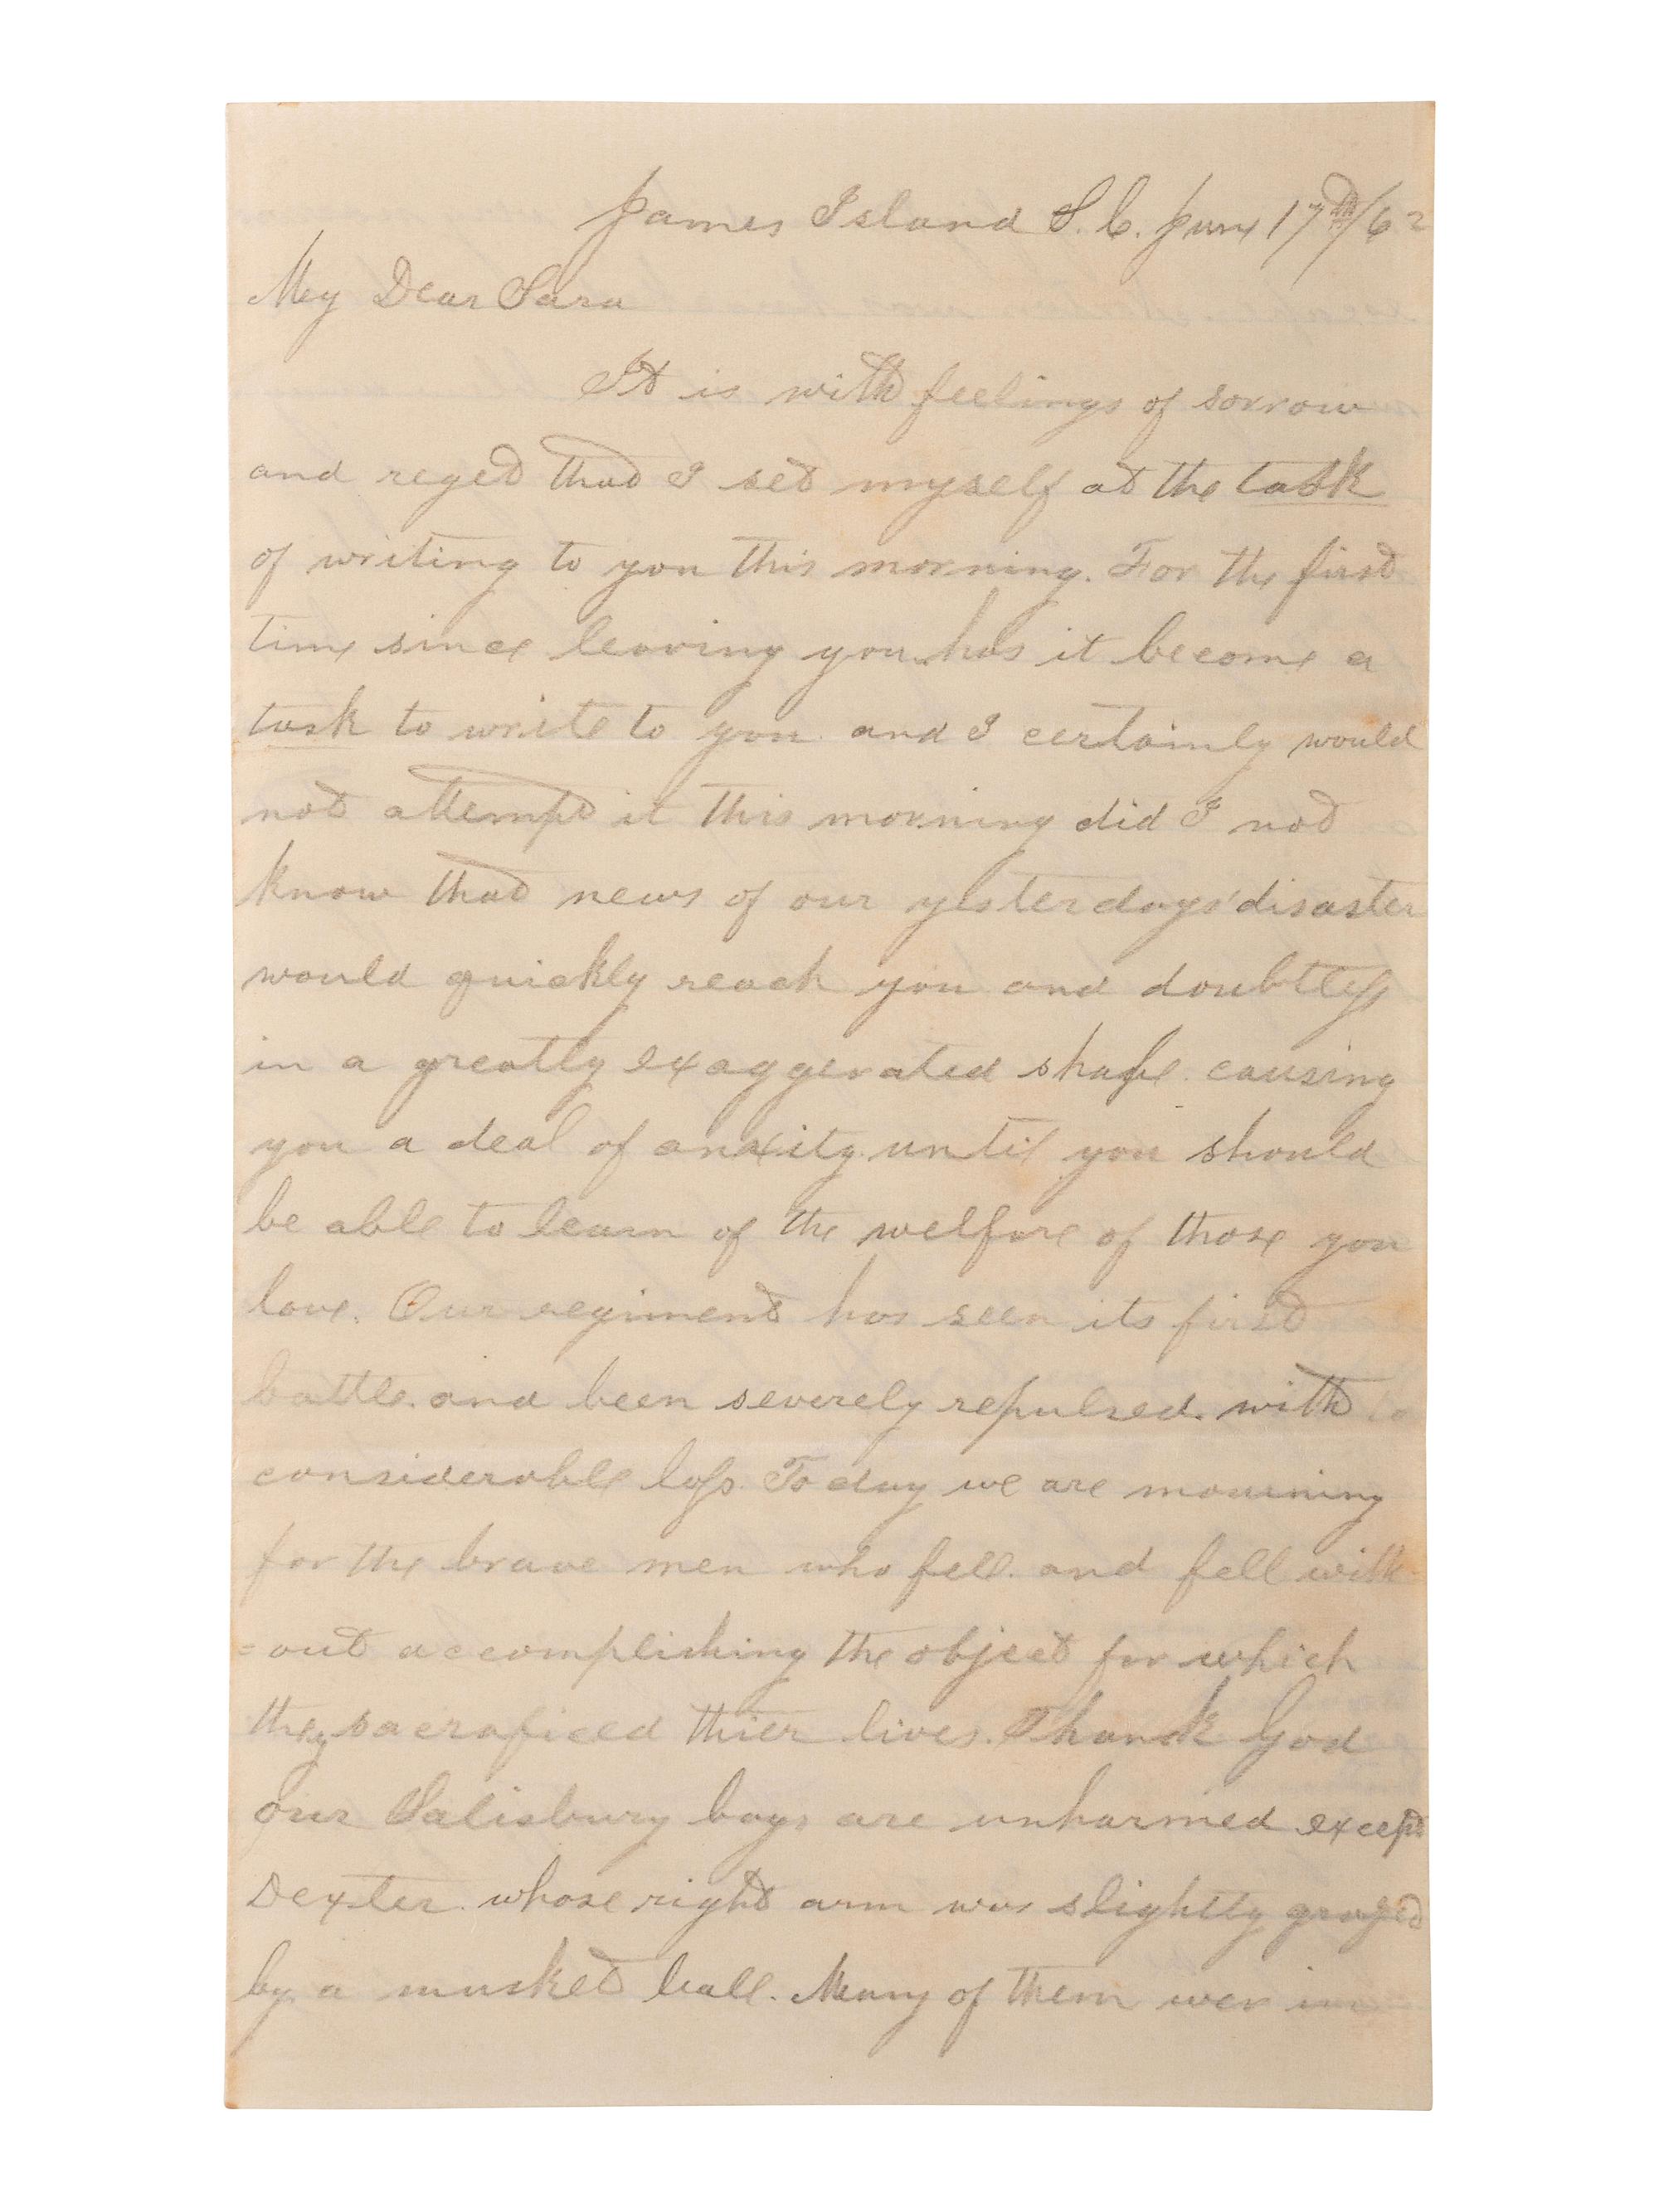 James Island S.C. June 17th/62
My Dear Sara
It is with feelings of sorrow
and reget that I set myself at the task
of writing to you this morning. For the first
time since leaving you has it become a
task to write to you and I certainly would
not attempt it this morning did I not
know that news of our yesterdays' disaster
would quickly reach you and doubtless
in a greatly exaggerated shape causing
you a deal of anxity until you should
be able to learn of the welfare of those you
love. Our regiment has seen its first
battle and been severely repulsed. with
considerable loss. To day we are mourning
for the brave men who fell. and fell with
=out accomplishing the object for which
they sacraficed thier lives. Thank God
our Salisbury boys are unharmed except
Dexter. whose right arm was slightly grazed
by a musket ball. Many of them wer in